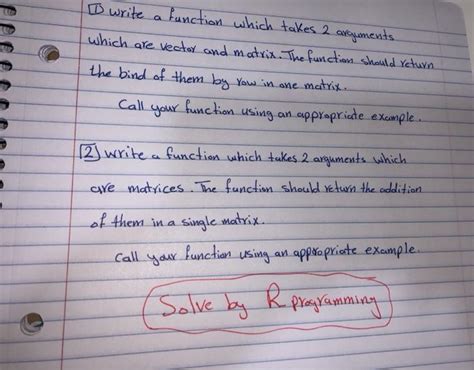 1 write a function which takes 2 arguments
which are vector and matrix. The function should return
the bind of them by row in one matrix.
Call your function using an appropriate example.
2 write a function which takes 2 arguments which
are matrices. The function should return the addition
of them in a single matrix.
Call your function using an appropriate example.
Solve by R programming